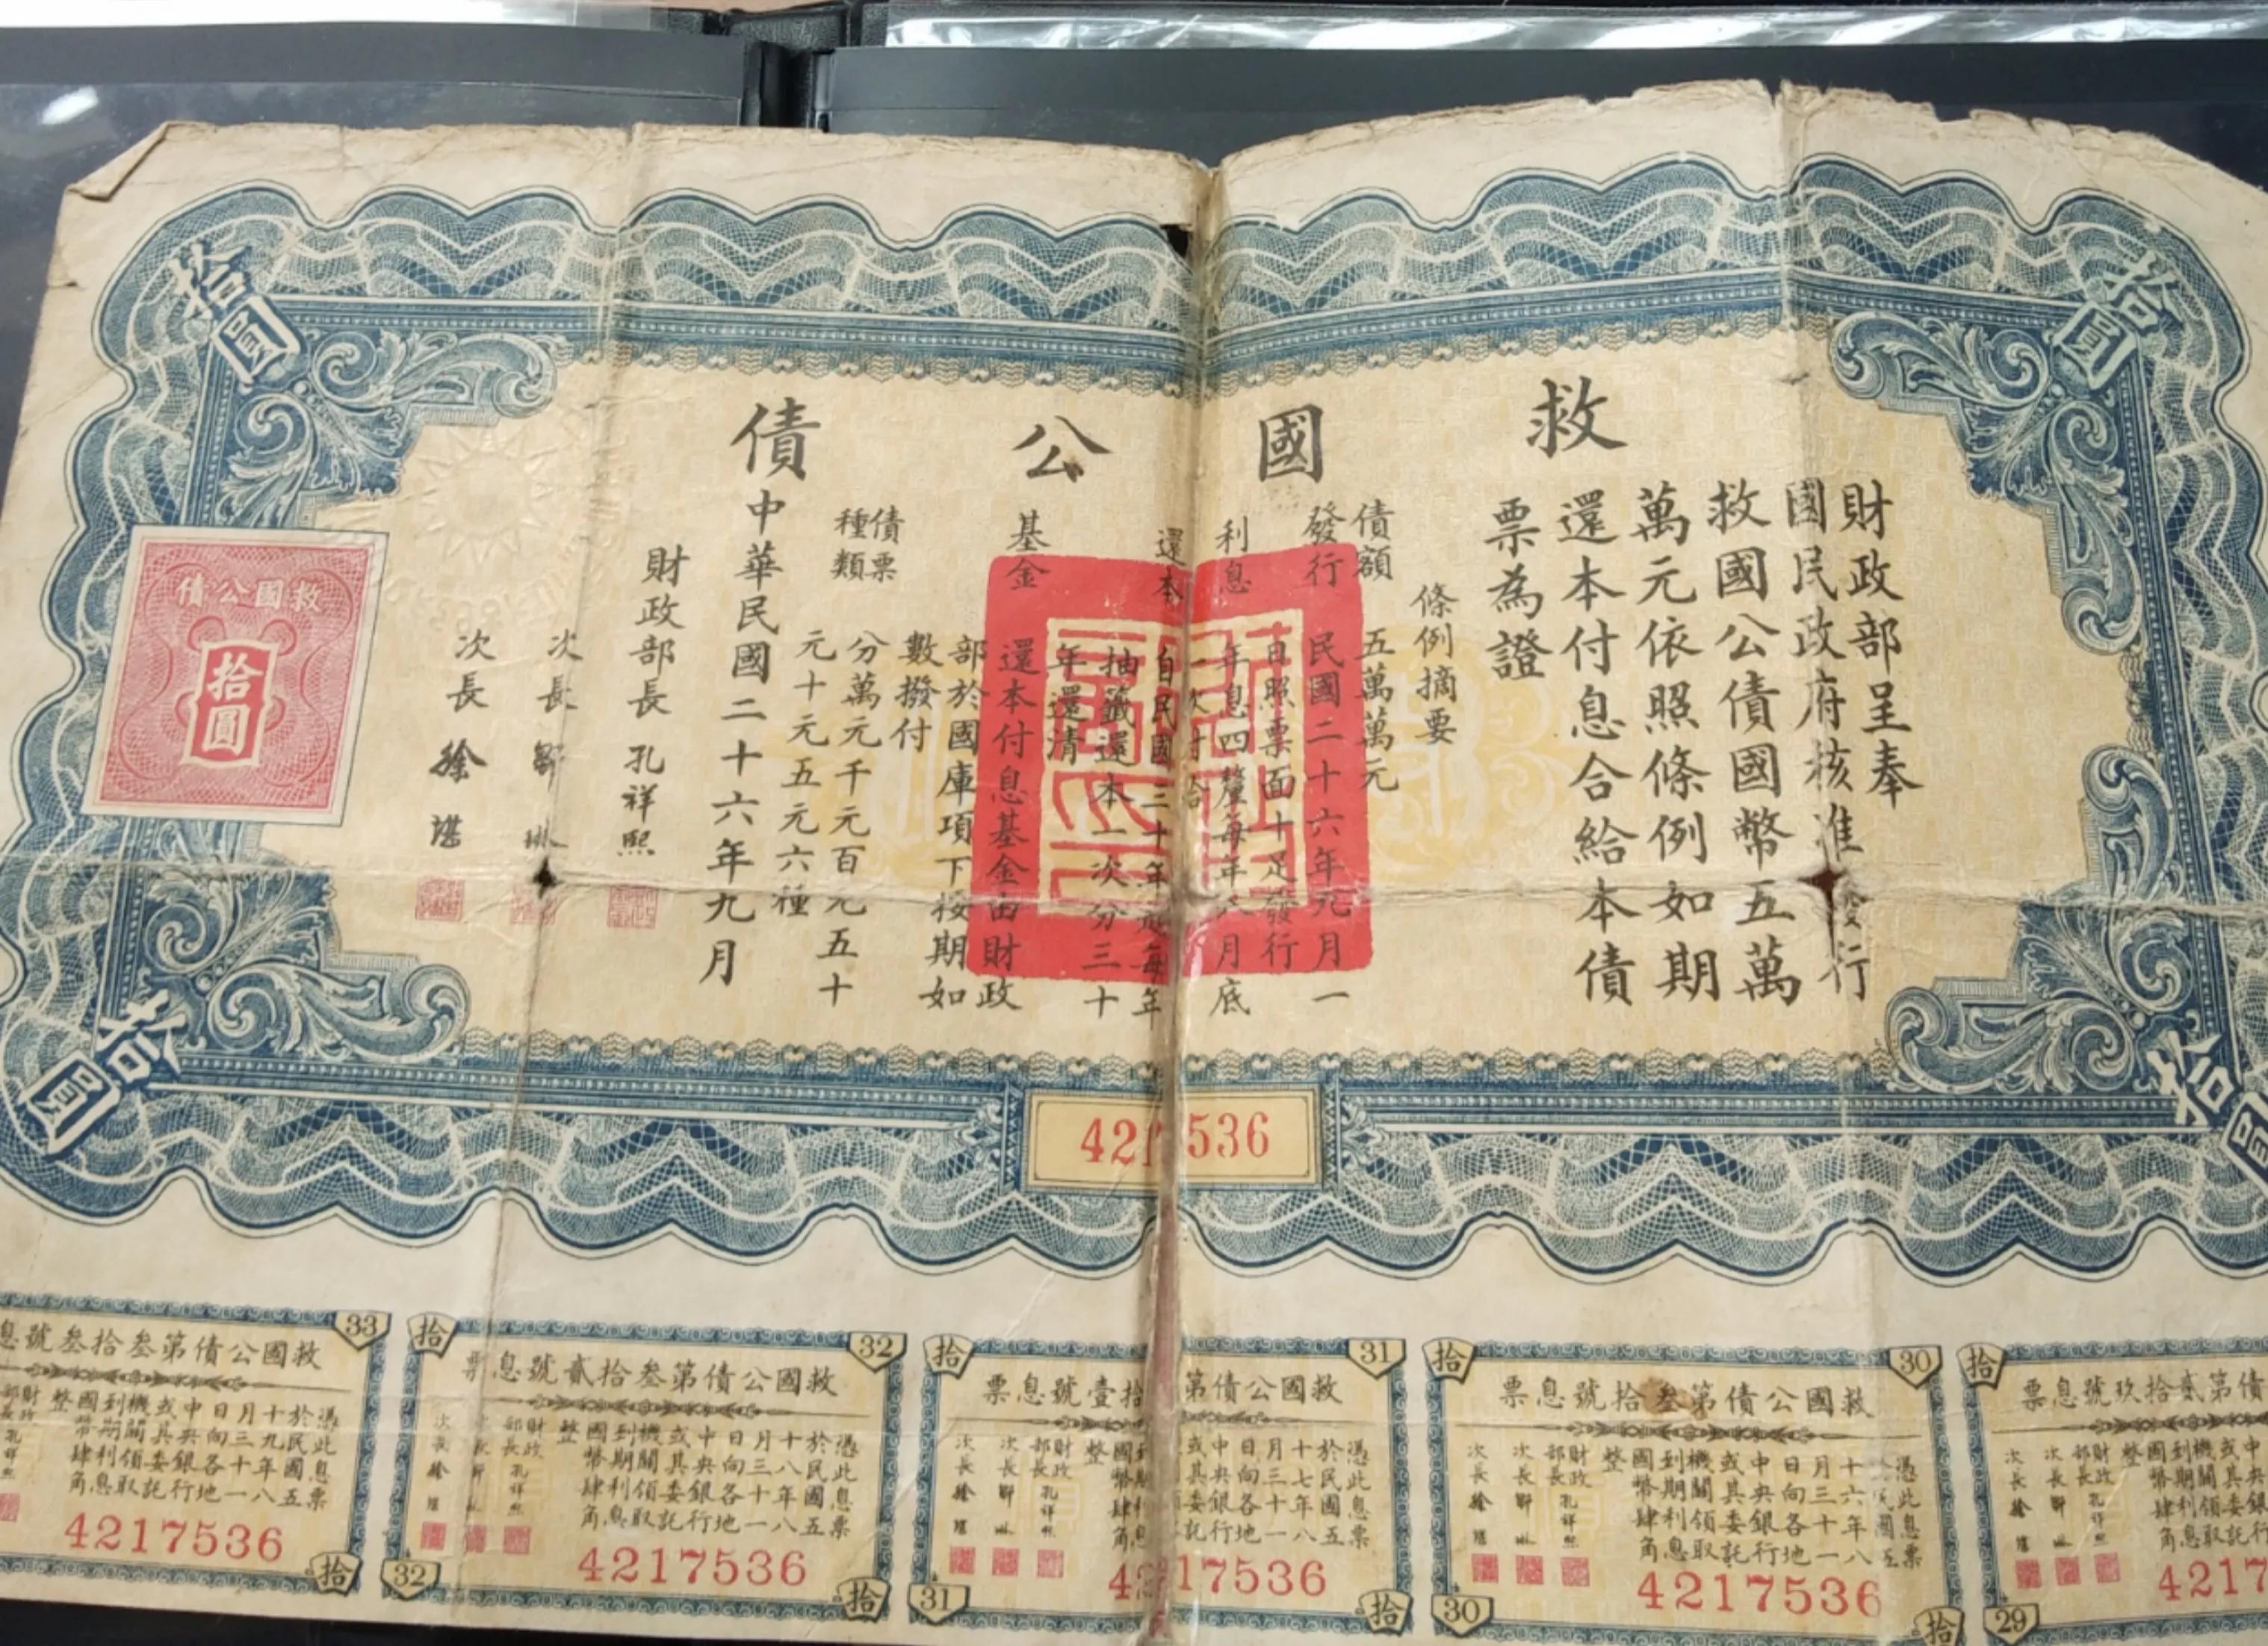 救國公債
財政部呈奉
國民政府核准發行
救國公債國幣五萬
萬元依照條例如期
還本付息合給本債
票為證
條例摘要
債額 五萬萬元
發行 民國二十六年九月一
日照票面十足發行
利息 年息四釐每年八月底
一次付給
還本 自民國三十年起每年
抽籤還本一次分三十
年還清
基金 還本付息基金由財政
部於國庫項下按期如
數撥付
債票種類 分萬元千元百元五十
元十元五元六種
中華民國二十六年九月
財政部長 孔祥熙
次長 鄒琳
次長 徐堪
拾圓
拾圓
拾圓
拾圓
救國公債
拾圓
4217536
拾
救國公債第貳拾玖號息票
財政部長 孔祥熙
次長 鄒琳
次長 徐堪
4217
29
30
拾
救國公債第叁拾號息票
憑此息票
於民國五
十六年八
月三十一
日向各地
中央銀行
或其委託
機關領取
到期利息
國幣肆角
整
財政部長 孔祥熙
次長 鄒琳
次長 徐堪
4217536
30
拾
31
拾
救國公債第叁拾壹號息票
憑此息票
於民國五
十七年八
月三十一
日向各地
中央銀行
或其委託
國幣肆角
整
財政部長 孔祥熙
次長 鄒琳
次長 徐堪
4217536
31
拾
32
拾
救國公債第叁拾貳號息票
憑此息票
於民國五
十八年八
月三十一
日向各地
中央銀行
或其委託
機關領取
到期利息
國幣肆角
整
財政部長 孔祥熙
次長 鄒琳
次長 徐堪
4217536
32
拾
33
救國公債第叁拾叁號息
憑此息票
於民國五
十九年八
月三十一
日向各地
中央銀行
或其委託
機關領取
到期利息
國幣肆角
整
財政部長 孔祥熙
4217536
拾